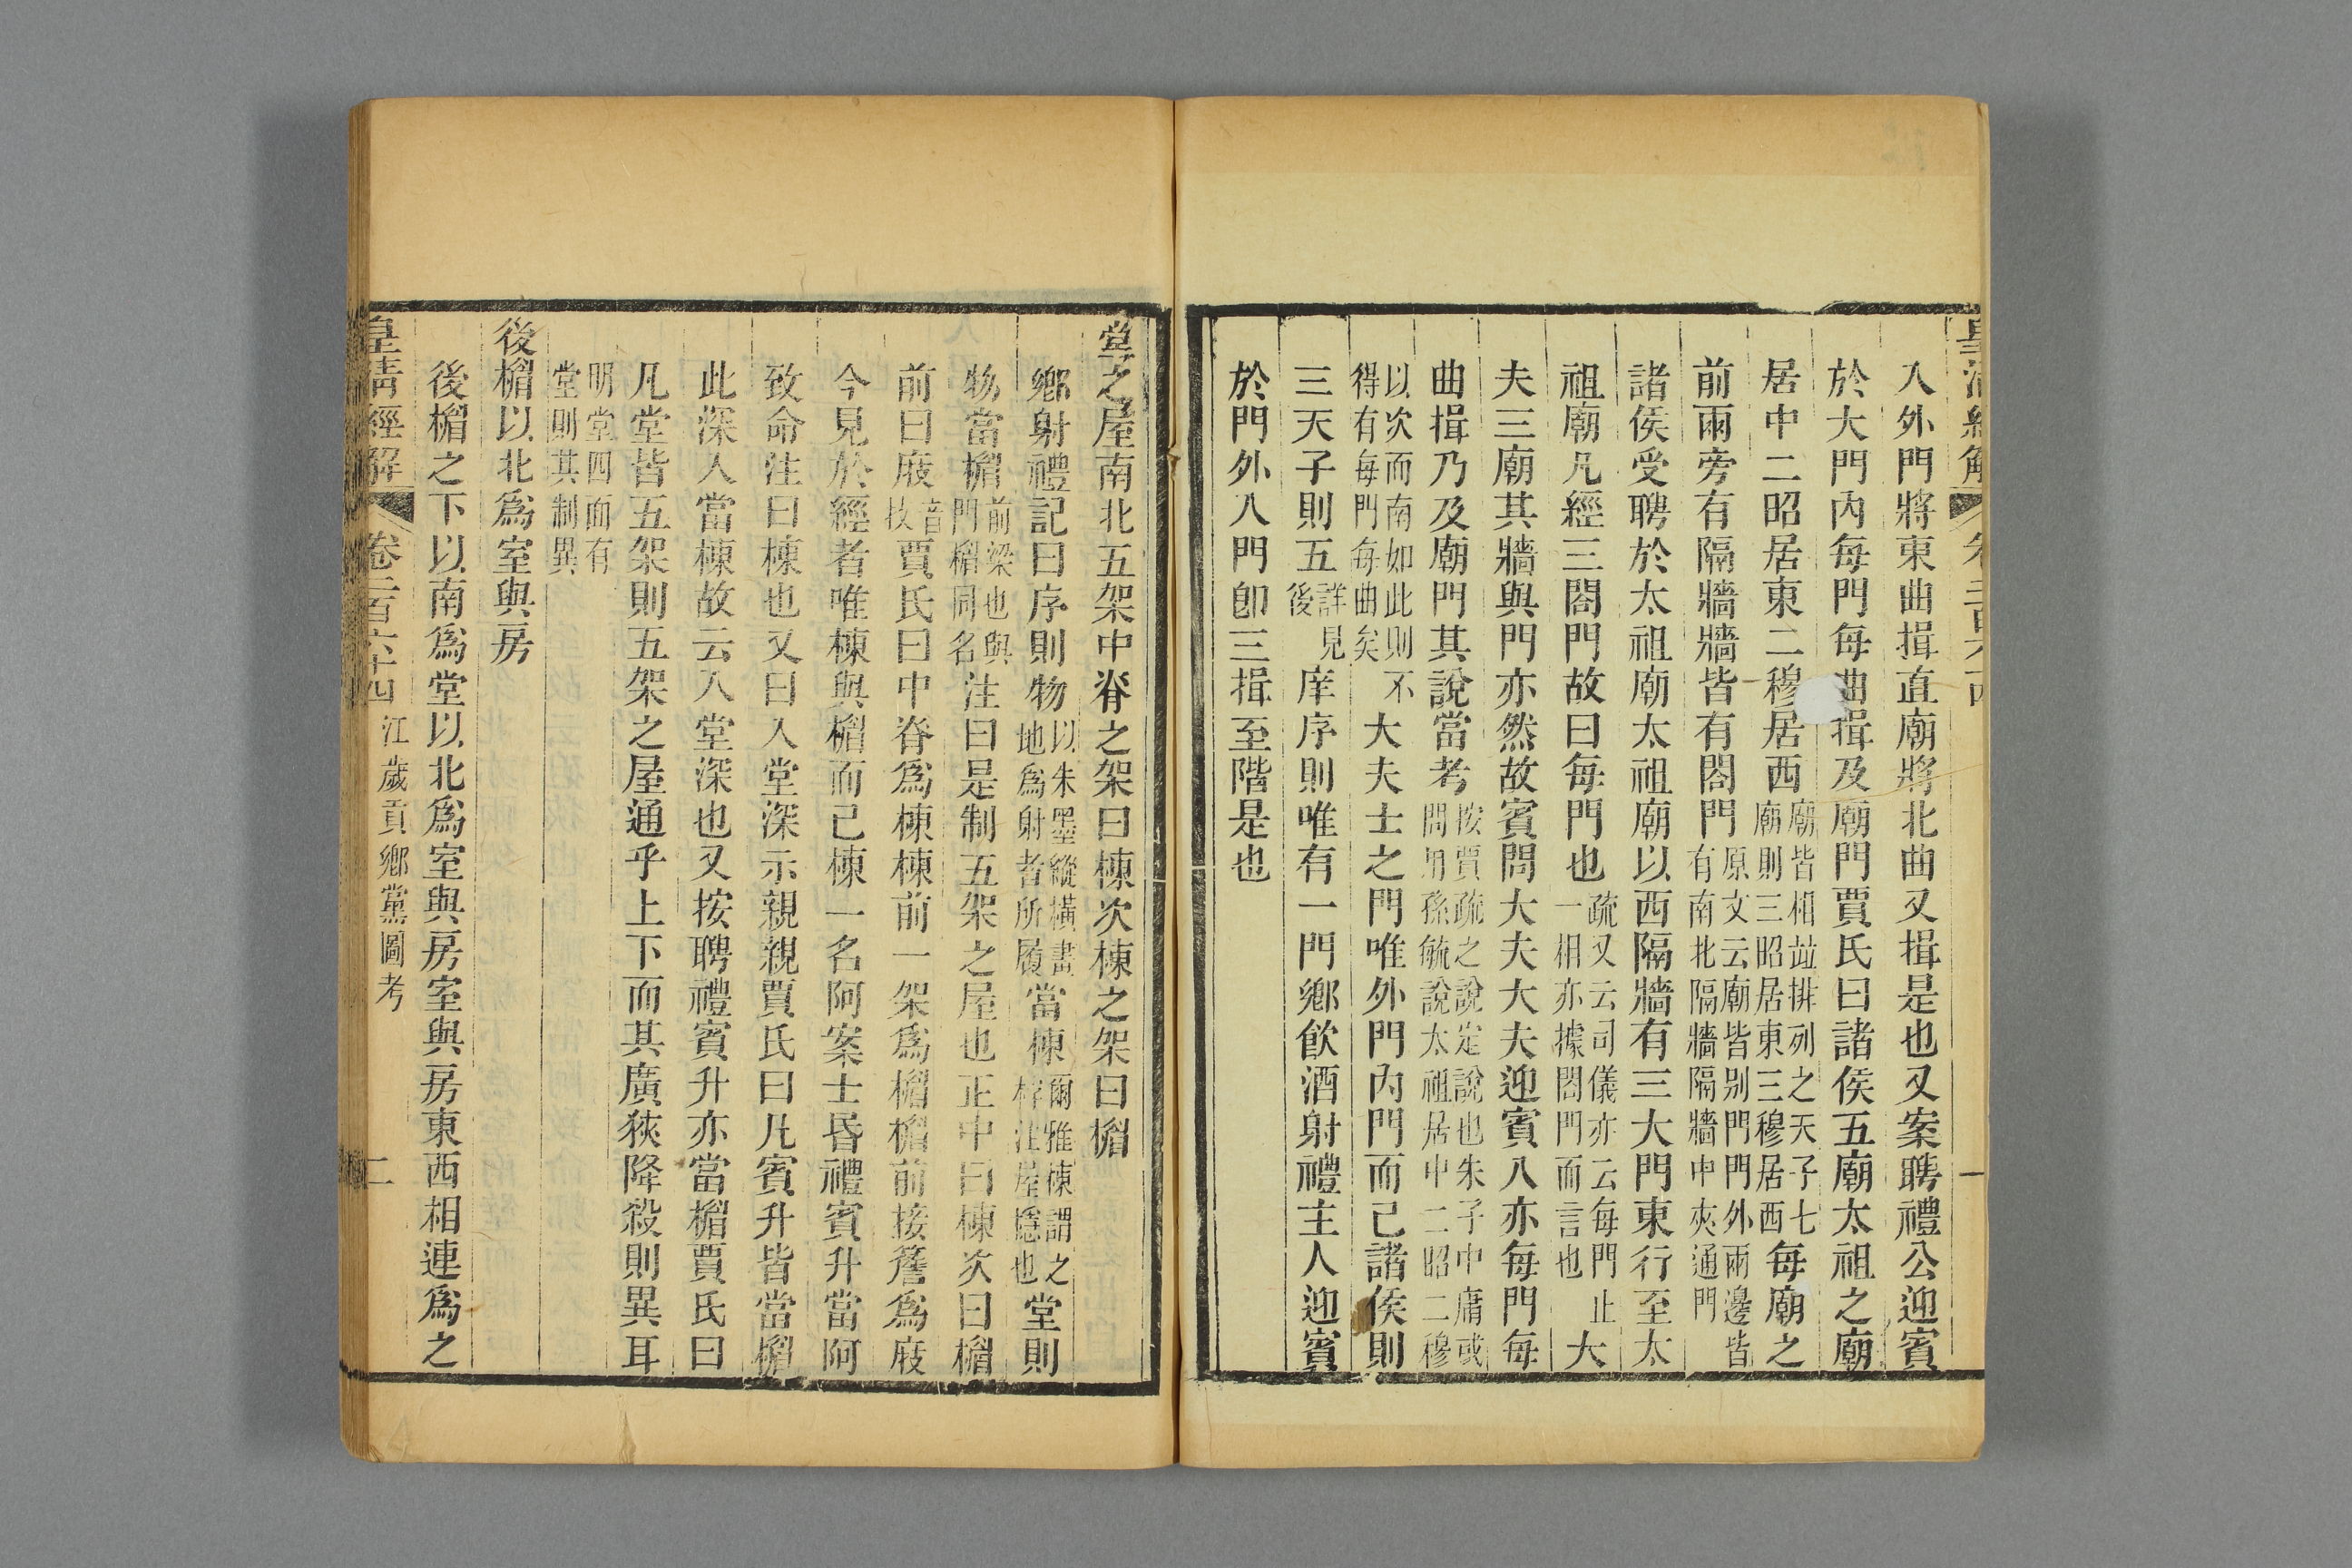 皇清經解 卷二百六十四 一
入外門將東曲揖直廟將北曲又揖是也又案聘禮公迎賓
於大門內每門每曲揖及廟門賈氏曰諸侯五廟太祖之廟
居中二昭居東二穆居西廟皆相並排列之天子七廟則三昭居東三穆居西每廟之
前兩旁有隔牆牆皆有閤門原文云廟皆別門門外兩邊皆有南北隔牆隔牆中夾通門
諸侯受聘於太祖廟太祖廟以西隔牆有三大門東行至太
祖廟凡經三閤門故曰每門也疏又云司儀亦云每門止一相亦據閤門而言也大
夫三廟其牆與門亦然故賓問大夫大夫迎賓入亦每門每
曲揖乃及廟門其說當考按賈疏之說定說也朱子中庸或問用孫毓說太祖居中二昭二穆
以次而南如此則不得有每門每曲矣大夫士之門唯外門內門而已諸侯則
三天子則五詳見後庠序則唯有一門鄉飲酒射禮主人迎賓
於門外入門卽三揖至階是也
堂之屋南北五架中脊之架曰棟次棟之架曰楣
鄉射禮記曰序則物以朱墨縱橫畫地爲射者所履當棟爾雅棟謂之桴注屋隱也堂則
物當楣前梁也與門楣同名注曰是制五架之屋也正中曰棟次曰楣
前曰庪音技賈氏曰中脊爲棟棟前一架爲楣楣前接簷爲庪
今見於經者唯棟與楣而已棟一名阿案士昏禮賓升當阿
致命注曰棟也又曰入堂深示親親賈氏曰凡賓升皆當楣
此深入當棟故云入堂深也又按聘禮賓升亦當楣賈氏曰
凡堂皆五架則五架之屋通乎上下而其廣狹降殺則異耳
明堂四面有堂則其制異
後楣以北爲室與房
後楣之下以南爲堂以北爲室與房室與房東西相連爲之
皇清經解 卷二百六十四 江歲貢鄉黨圖考 二